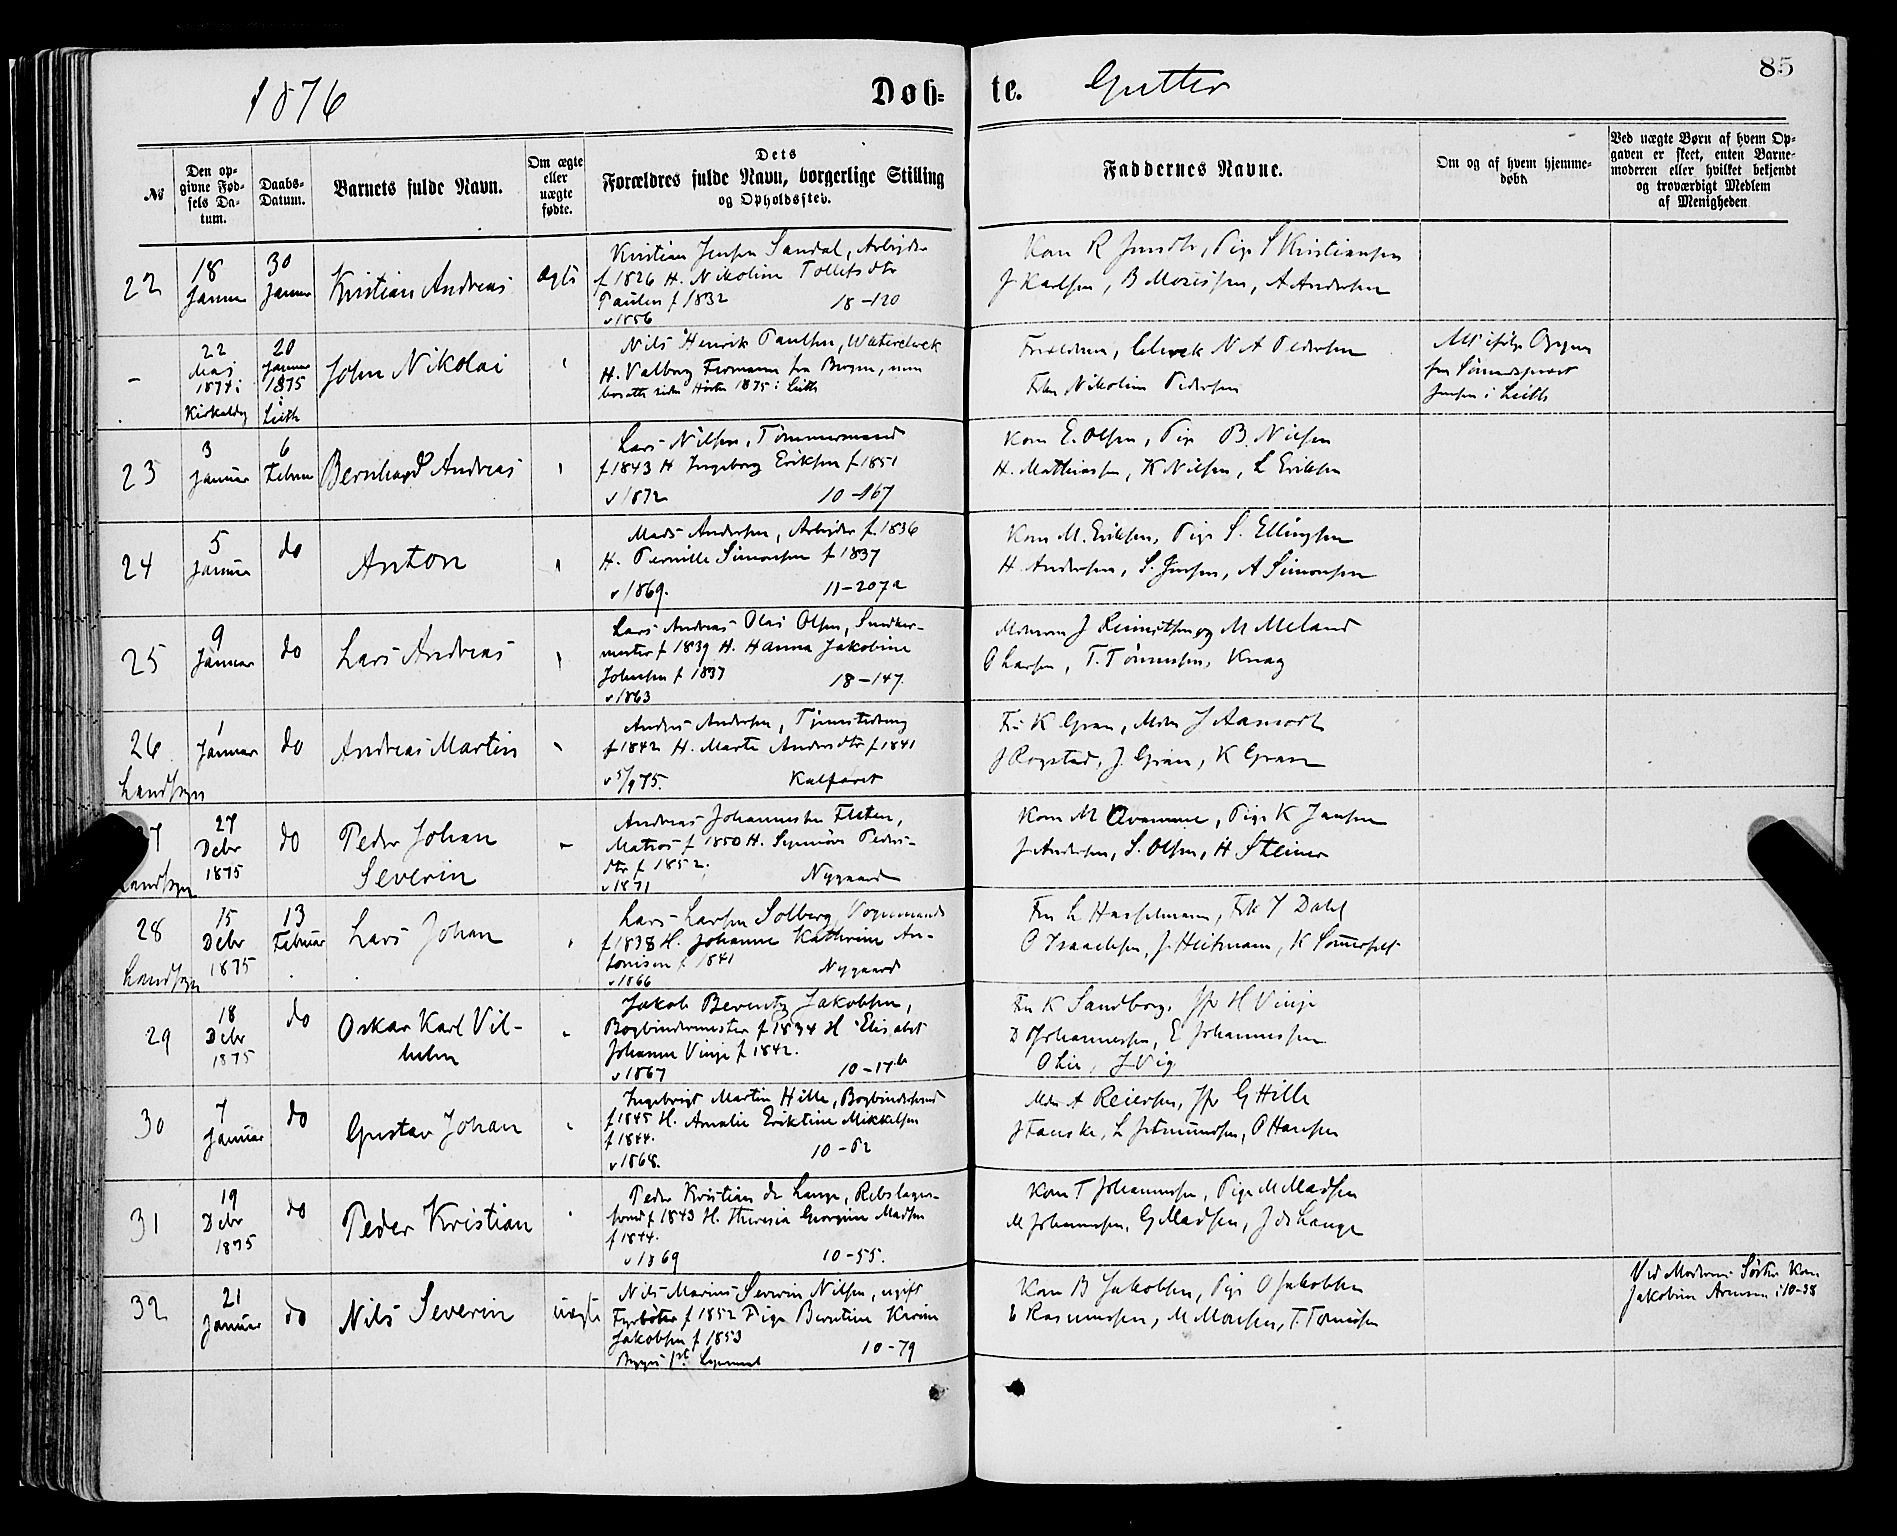 1876
Døb-
te.
Gutter
85
No
Den op-
givne Fød-
sels Da-
tum.
Daabs-
Datum.
Barnets fulde Navn.
Om ægte
eller
uægte
fødte.
Dets
Forældres fulde Navn, borgerlige Stilling
og Opholdssted.
Faddernes Navne.
Om og af hvem hjemme-
døbt
Ved uægte Børn af hvem Op-
gaven er skeet, enten Barne-
moderen eller hvilket bekjendt
og troværdigt Medlem
af Menigheden
22
18
Januar
30
Januar
Kristian Andreas
Ægte
Kristian Jensen Sandal, Arbeider
f 1826 H. Nikoline Tollefsdtr
Paulsen f 1832 18-120
v 1856
Kristiansen
J Karlsen, B Monssen, A Andersen
-
22
Mai
1874 i
Kirkaldy
20
Januar
1875
i
Leith
John Nikolai
Nils Henrik Paulsen, Waterclerk
H. Valborg Formann fra Bergen, nu
bosatte siden Høsten 1875 i Leith
Forældrene, Clerck N A Pedersen
Frken Nikoline Pedersen
Jensen i Leith
23
3
Januar
6
Februar
Bernhard Andreas
Lars Nilsen, Tømmermand
f 1843 H Ingeborg Eriksen f 1851
v 1872 10-167
Kone E. Olsen, Pige B. Nilsen
H. Mathiassen, K Nilsen, L Eriksen
24
5
Januar
do
Anton
Mads Andersen, Arbeider f. 1836
H. Pernille Simonsen f 1837
v 1869. 11-207a
Kone M. Eriksen, Pige S. Ellingsen
H Andersen, S. Jensen, A Simonsen
25
9
Januar
do
Lars Andreas
Lars Andreas Olai Olsen, Snedker-
mester f 1839 H. Hanna Jakobine
Johnsen f 1837 18-147.
v 1863
M Meland
O Larsen, T. Tønnesen, Knag
26.
Landsogn
1
Januar
do
Andreas Martin
Anders Andersen, Tjenestedreng
f 1842 H. Marte Andersdtr f 1841
v 5/9 75. Kalfaret
Fru K Gran, Mdm J Aamodt
J Rogstad, J. Gran, K Gran
27
Landsogn
27
Debr
1875
do
Peder Johan
Severin
Andreas Johannesen Fleten,
Matros f 1850 H. Synnøve Peders-
dtr f 1852.
v 1871 Nygaard
Kone M Qvamme, Pige K Jansen
J Andersen, S. Olsen, H Steiner
28
Landsogn
15
Debr
1875
13
Februar
Lars Johan
Lars Larsen Solberg, Vognmand
f 1838 H. Johanne Kathrine An-
tonisen f 1841 Nygaard
v 1866
Fru L Hasselmann, Frk J Dahl
O Isaachsen, J. Heitmann, K Sømerfelt
29
18
Debr
1875
do
Oskar Karl Vil-
helm
Jakob Berentz Jakobsen,
Bogbindermester f 1834 H Elisabet
Johanne Vinje f 1842.
v 1867 10-17b
Fru K Sandborg, Jfr H Vinje
D Johannessen, E Johannessen
O Lie, J Vig
30
7
Januar
do
Gustav Johan
Ingebrigt Martin Hille, Bogbindersvend
f 1845 H. Amalie Eriktine Mikkelsen
f 1844.
v 1868. 10-62
Mdm A Reiersen, Jfr G Hille
J Fauske, L Jetmundsen, O Hansen
31
19
Debr
1875
do
Peder Kristian
Peder Kristian de Lange, Rebslager-
svend f 1843 H. Theresia Georgine Madsen
f 1844.
v 1869 10-55.
Kone T Johannesen, Pige M Madsen
M Johannesen, G Madsen, J de Lange
32
21
Januar
do
Nils Severin
uægte
Nils Marius Severin Nilsen, ugift
Fyrbøter f 1852 Pige Berntine Karine
Jakobsen f 1853
10-79
Kone B Jakobsen, Pige O Jakobsen
E Rasmussen, M Monsen, T. Tornøsen
Ved Moderens Søster Kone
Jakobine Arnesen i 10-38